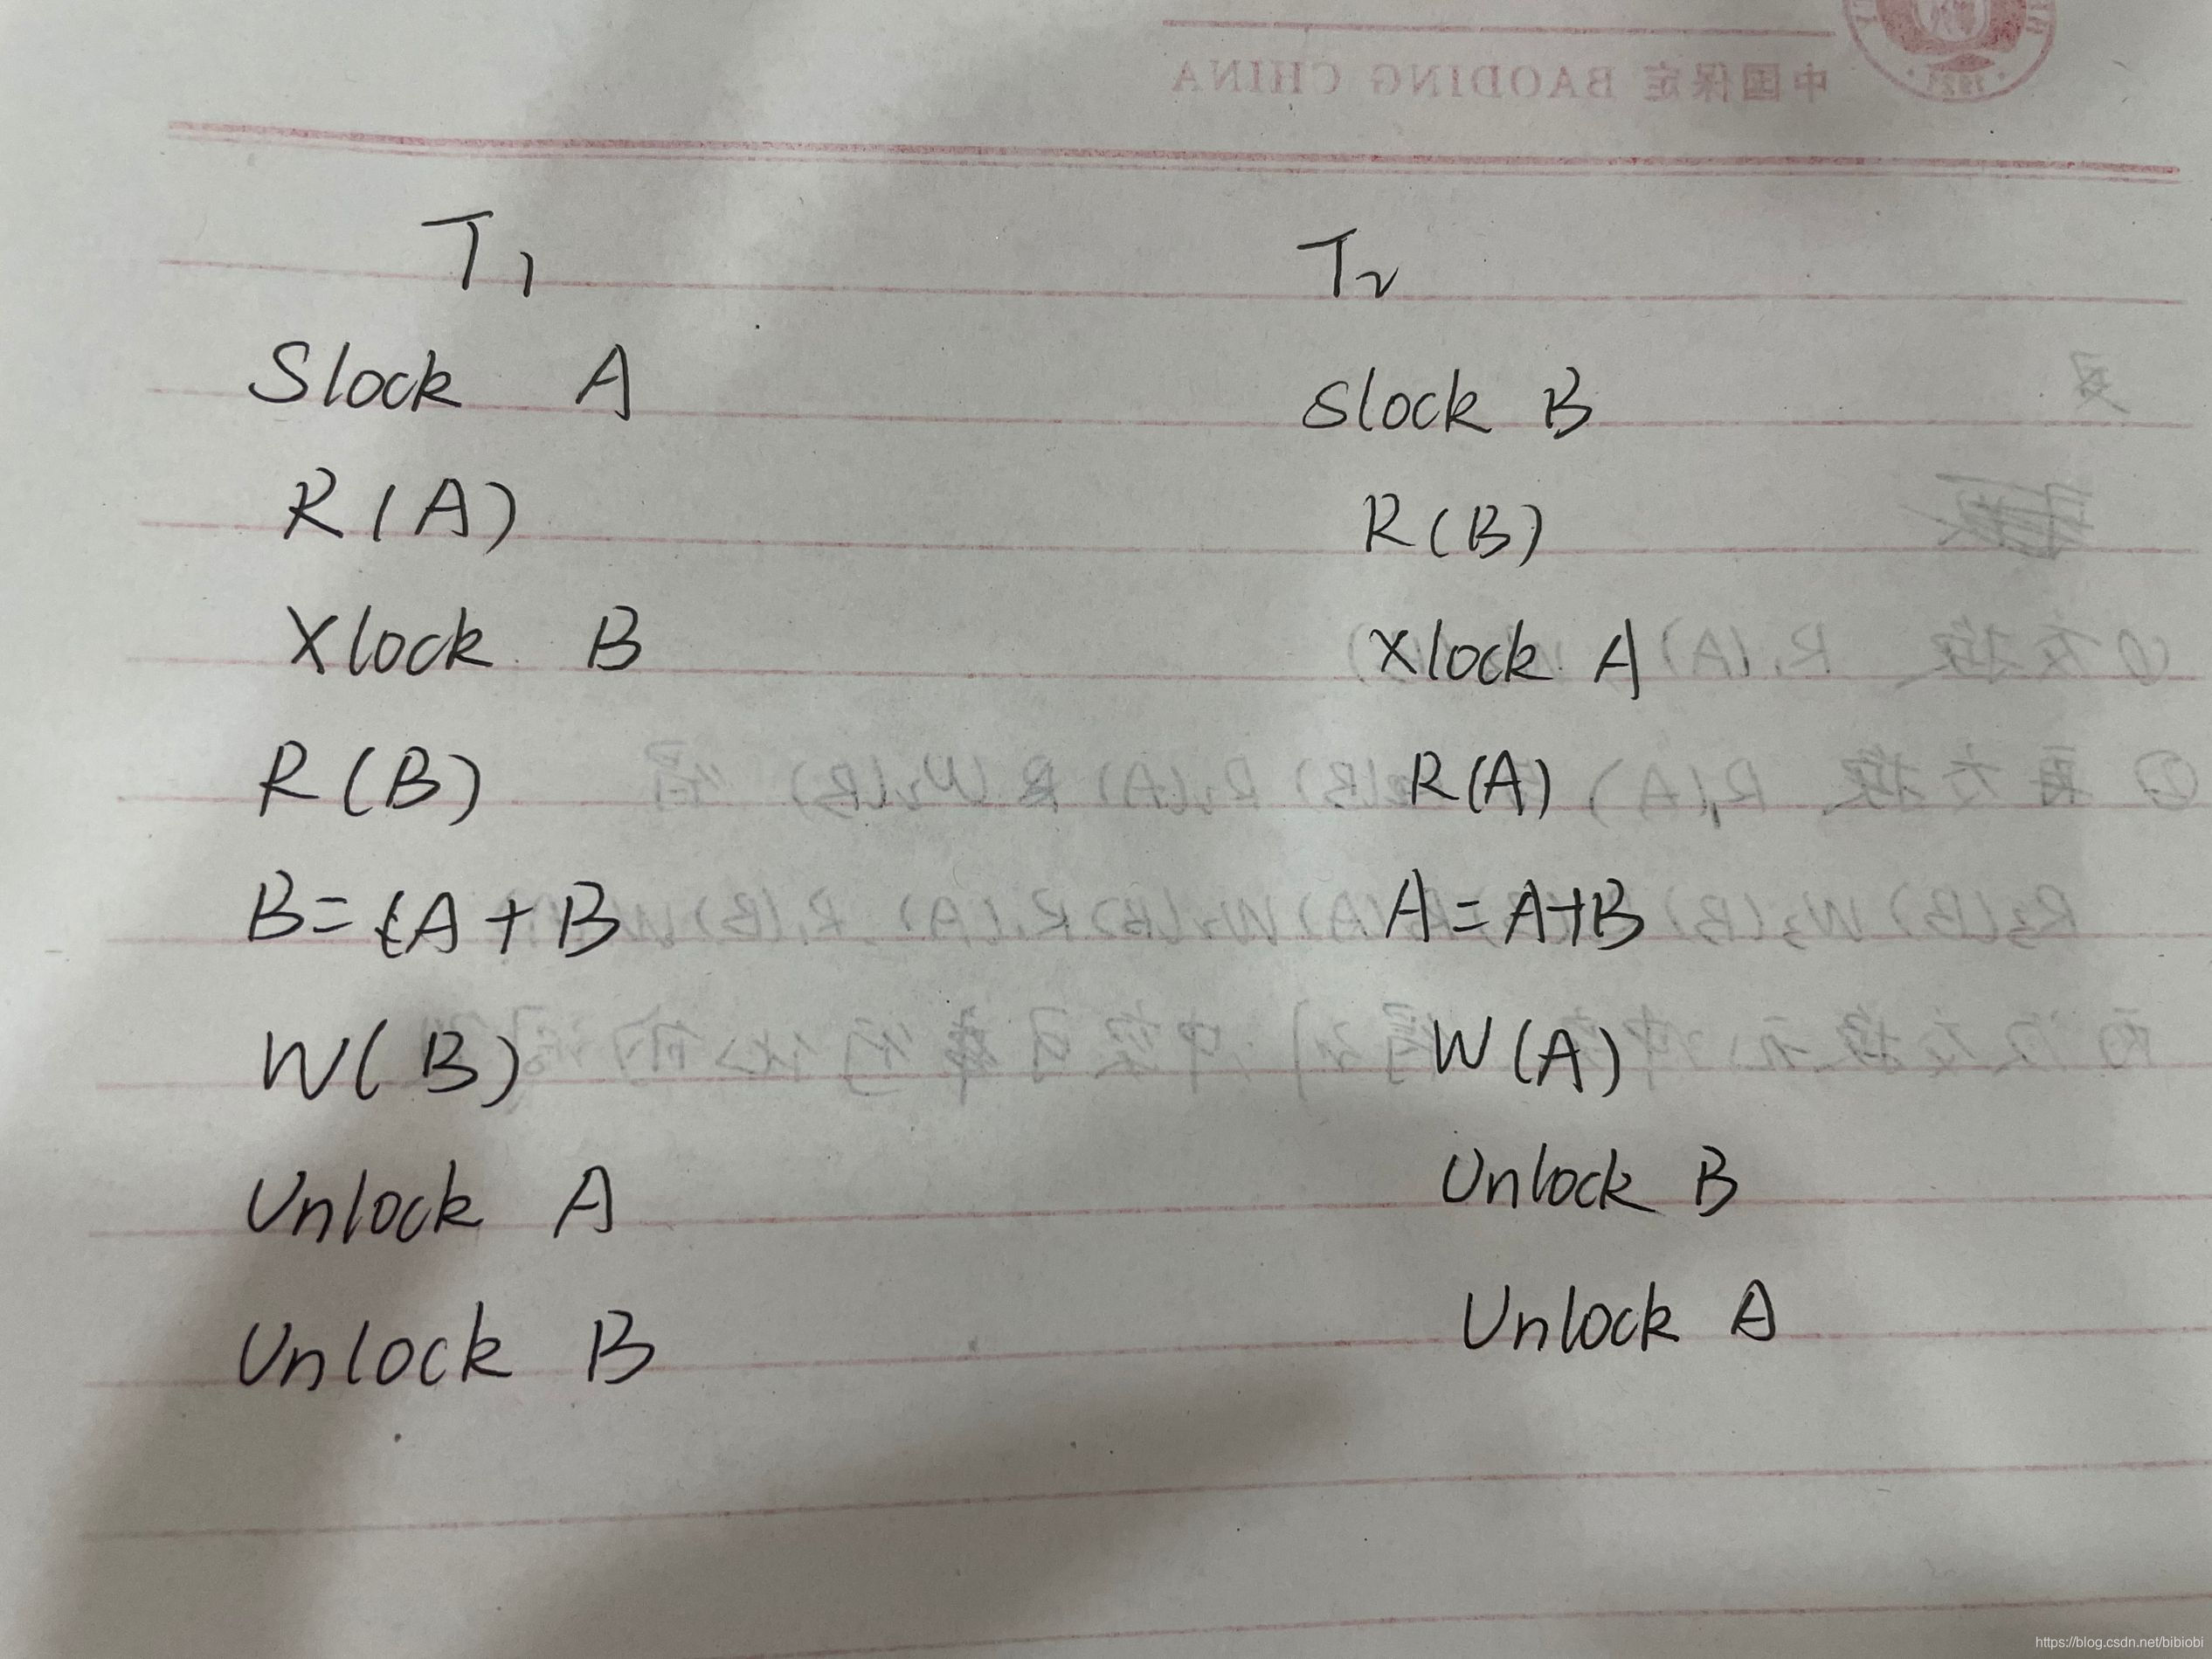 中国保定 BAODING CHINA
T1 T2
Slock A Slock B
R(A) R(B)
Xlock B Xlock A
R(B) R(A)
B=(A+B A=A+B
W(B) W(A)
Unlock A Unlock B
Unlock B Unlock A
https://blog.csdn.net/bibiobi